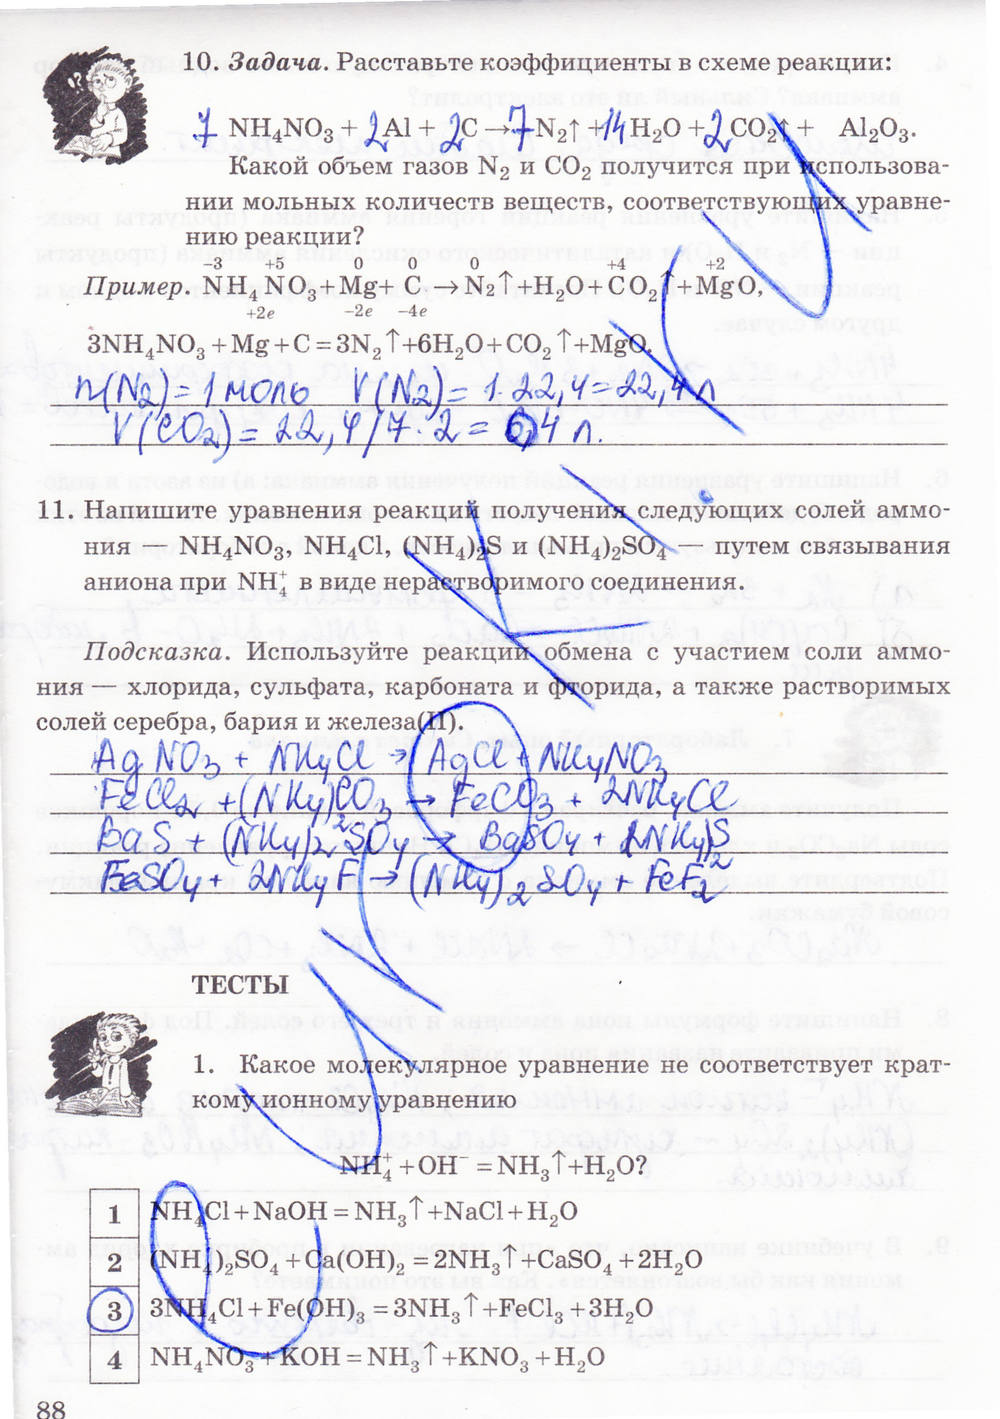 10. Задача. Расставьте коэффициенты в схеме реакции:
7 NH₄NO₃ + 2 Al + 2 C → 7 N₂↑ + 14 H₂O + 2 CO₂↑ + Al₂O₃.
Какой объем газов N₂ и CO₂ получится при использова-
нии мольных количеств веществ, соответствующих уравне-
нию реакции?
−3 +5 0 0 0 +4 +2
Пример. NH₄NO₃ + Mg + C → N₂↑ + H₂O + CO₂↑ + MgO,
+2e −2e −4e
3NH₄NO₃ + Mg + C = 3N₂↑ + 6H₂O + CO₂↑ + MgO.
n(N₂) = 1 моль V(N₂) = 1·22,4 = 22,4 л
V(CO₂) = 22,4/7·2 = 6,4 л.
11. Напишите уравнения реакций получения следующих солей аммо-
ния — NH₄NO₃, NH₄Cl, (NH₄)₂S и (NH₄)₂SO₄ — путем связывания
аниона при NH₄⁺ в виде нерастворимого соединения.
Подсказка. Используйте реакции обмена с участием соли аммо-
ния — хлорида, сульфата, карбоната и фторида, а также растворимых
солей серебра, бария и железа(II).
AgNO₃ + NH₄Cl → AgCl + NH₄NO₃
FeCl₂ + (NH₄)₂CO₃ → FeCO₃ + 2NH₄Cl
BaS + (NH₄)₂SO₄ → BaSO₄ + (NH₄)₂S
FeSO₄ + 2NH₄F → (NH₄)₂SO₄ + FeF₂
ТЕСТЫ
1. Какое молекулярное уравнение не соответствует крат-
кому ионному уравнению
NH₄⁺ + OH⁻ = NH₃↑ + H₂O?
1 NH₄Cl + NaOH = NH₃↑ + NaCl + H₂O
2 (NH₄)₂SO₄ + Ca(OH)₂ = 2NH₃↑ + CaSO₄ + 2H₂O
3 3NH₄Cl + Fe(OH)₃ = 3NH₃↑ + FeCl₃ + 3H₂O
4 NH₄NO₃ + KOH = NH₃↑ + KNO₃ + H₂O
88